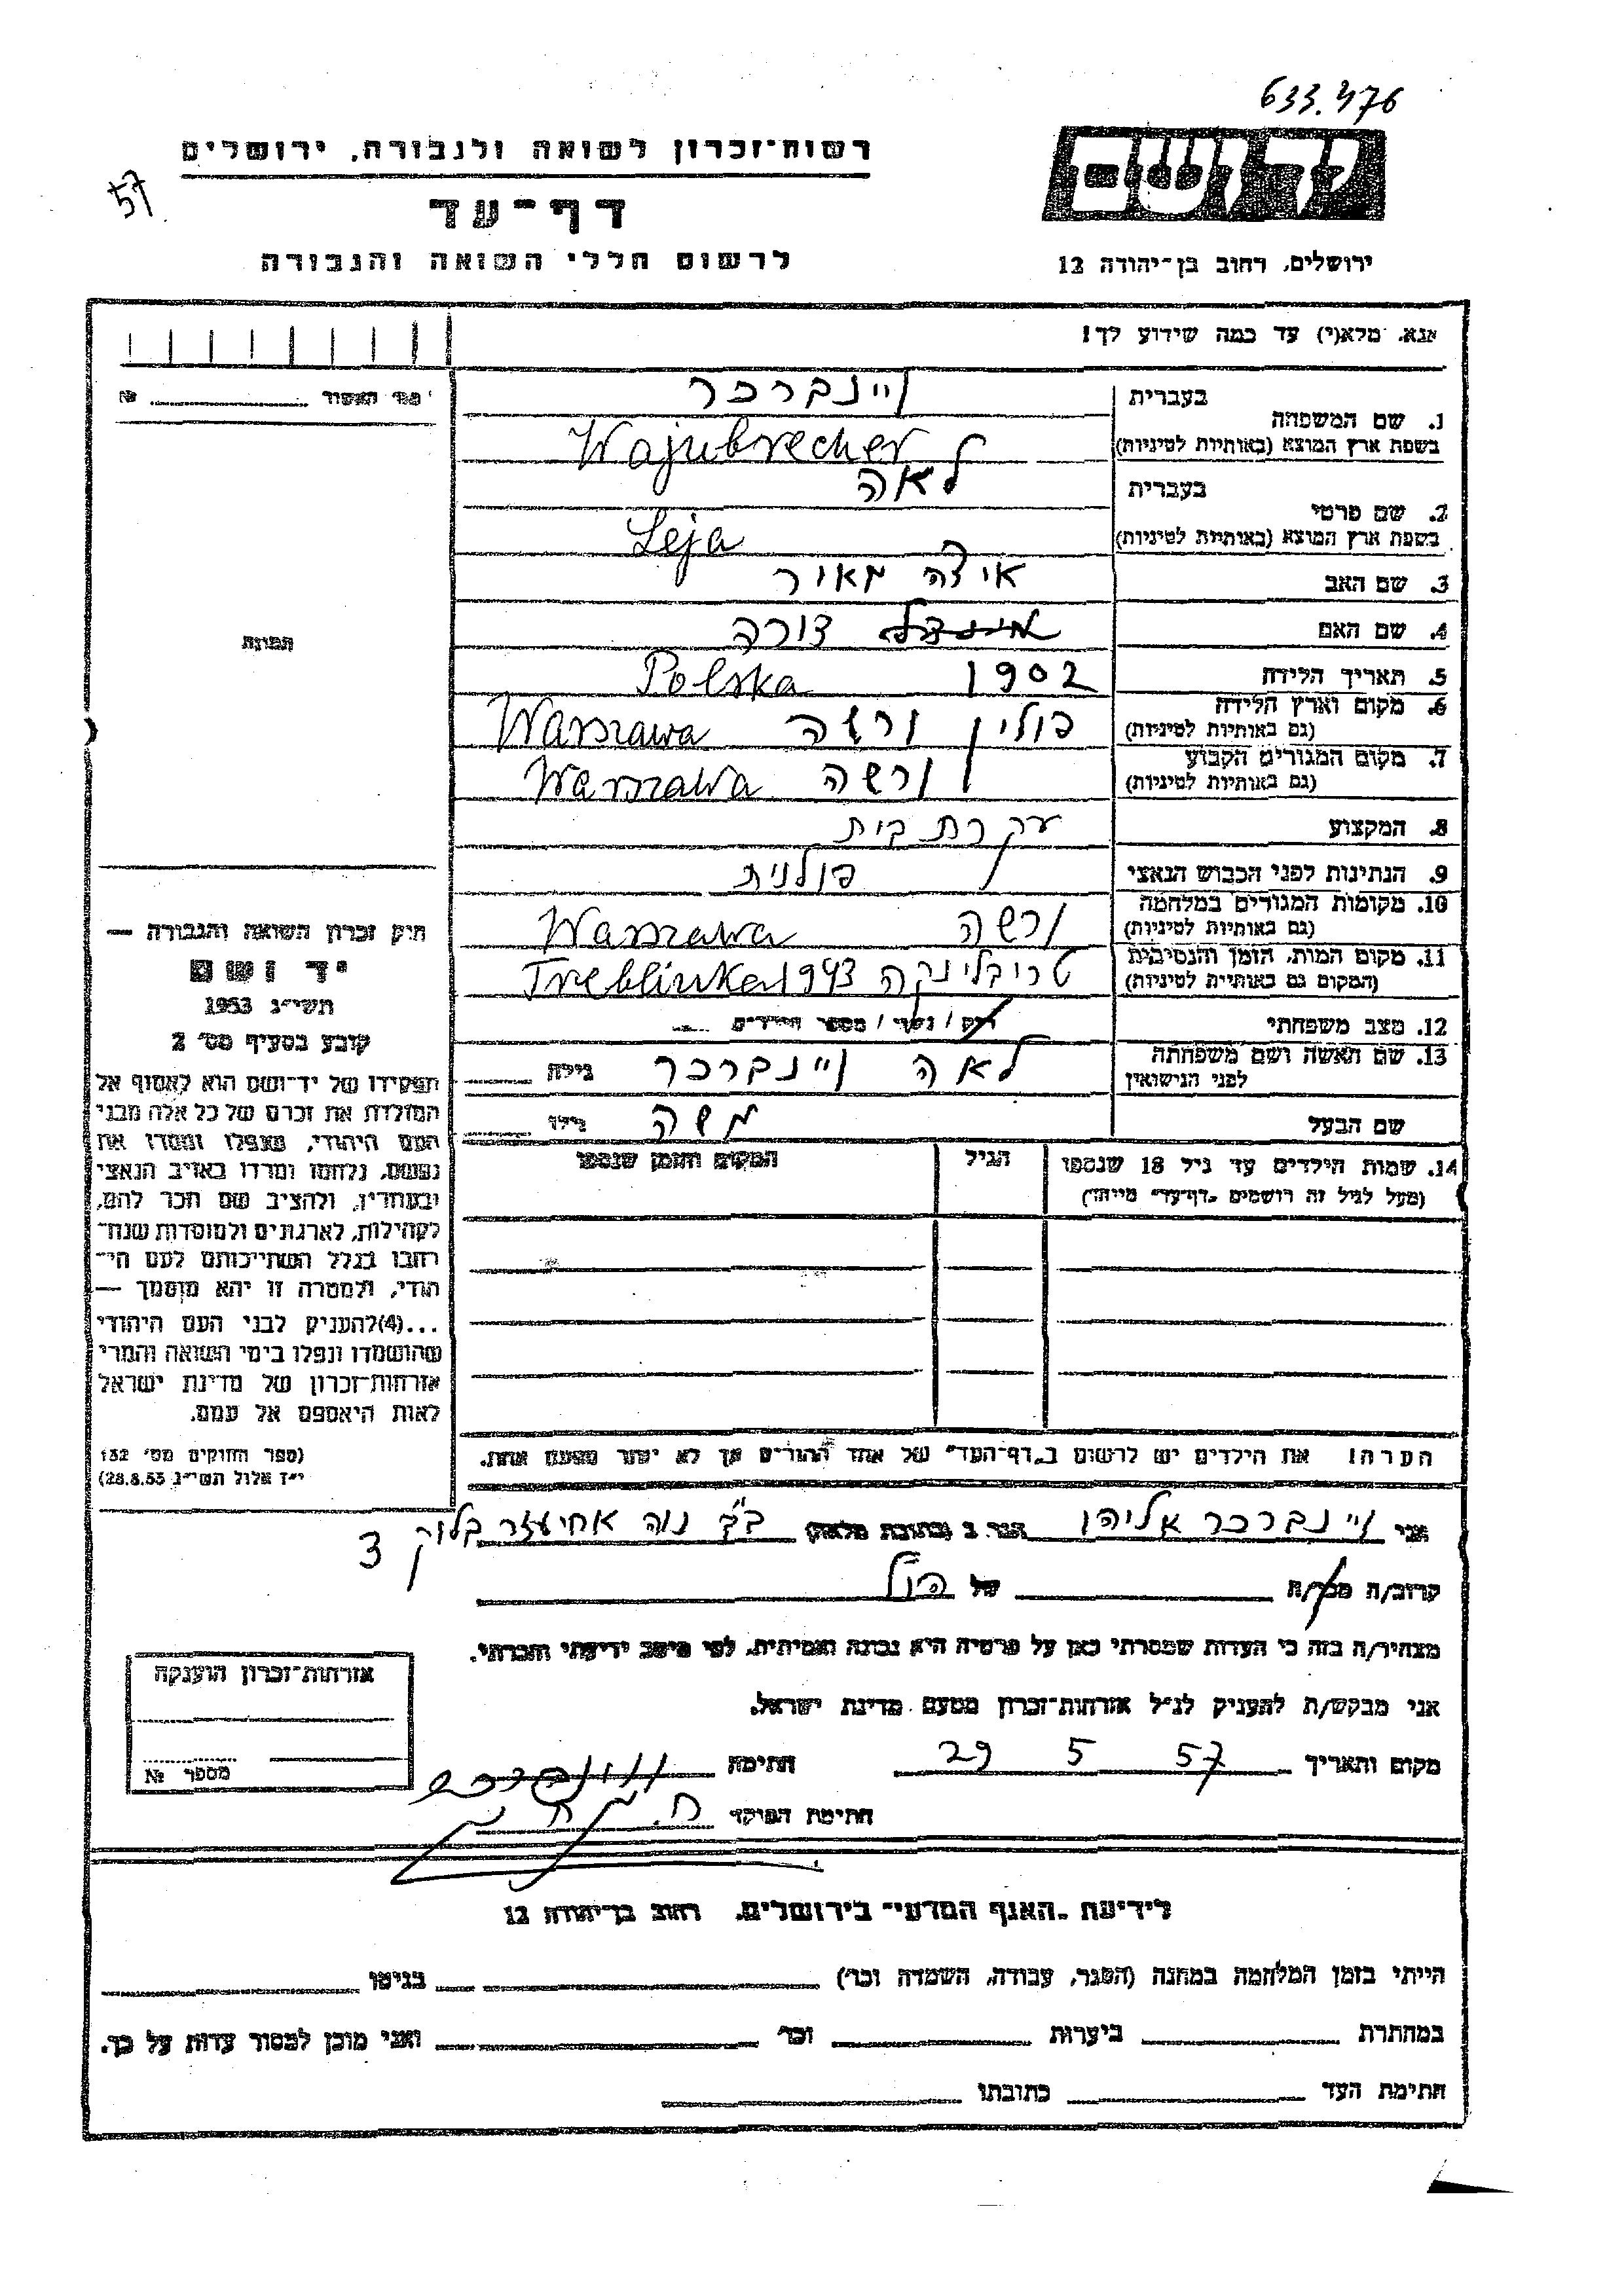 633.476
רשות־זכרון לשואה ולגבורה, ירושלים
57
דף־עד
לרשום חללי השואה והגבורה
יד ושם
ירושלים, רחוב בן־יהודה 12
אנא, מלא(י) עד כמה שידוע לך!
מס' האשור № 
1. שם המשפחה בעברית ויינברכר
בשפת ארץ המוצא (באותיות לטיניות) Wajnbrecher
2. שם פרטי בעברית לאה
בשפת ארץ המוצא (באותיות לטיניות) Leja
3. שם האב איצה מאיר
4. שם האם צורה
5. תאריך הלידה 1902 Polska
6. מקום וארץ הלידה (גם באותיות לטיניות) פולין ורשה Warszawa
7. מקום המגורים הקבוע (גם באותיות לטיניות) ורשה Warszawa
8. המקצוע עקרת בית
9. הנתינות לפני הכבוש הנאצי פולנית
10. מקומות המגורים במלחמה (גם באותיות לטיניות) ורשה Warszawa
11. מקום המות, הזמן והנסיבות (המקום גם באותיות לטיניות) טריבלינקה 1943 Treblinka
12. מצב משפחתי רוק / נשוי / מספר הילדים
13. שם האשה ושם משפחתה לפני הנישואין לאה ויינברכר גילה
שם הבעל משה גילו
14. שמות הילדים עד גיל 18 שנספו
(מעל לגיל זה רושמים "דף־עד" מיוחד)
הגיל
המקום והזמן שנספו
הערה! את הילדים יש לרשום ב"דף־העד" של אחד ההורים אך לא יותר מפעם אחת.
תמונה
חוק זכרון השואה והגבורה —
יד ושם
תשי"ג 1953
קובע בסעיף מס' 2
תפקידו של יד־ושם הוא לאסוף אל
המולדת את זכרם של כל אלה מבני
העם היהודי, שנפלו ומסרו את
נפשם, נלחמו ומרדו באויב הנאצי
ובעוזריו, ולהציב שם וזכר להם,
לקהילות, לארגונים ולמוסדות שנח־
רבו בגלל השתייכותם לעם הי־
הודי, ולמטרה זו יהא מוסמך —
...(4) להעניק לבני העם היהודי
שהושמדו ונפלו בימי השואה והמרי
אזרחות־זכרון של מדינת ישראל
לאות היאספם אל עמם.
(ספר החוקים מס' 132
י"ד אלול תשי"ג 28.8.53)
אני ויינברכר אליהו הגר ב (כתובת מלאה) ב"ב נוה אחיעזר בלוק 3
קרוב/ה מכר/ה של הנ"ל
מצהיר/ה בזה כי העדות שמסרתי כאן על פרטיה היא נכונה ואמיתית, לפי מיטב ידיעתי והכרתי.
אני מבקש/ת להעניק לנ"ל אזרחות־זכרון מטעם מדינת ישראל.
מקום ותאריך 29 5 57 חתימה
חתימת הפוקד
אזרחות־זכרון הוענקה
מספר №
לידיעת "האגף המדעי" בירושלים, רחוב בן־יהודה 12
הייתי בזמן המלחמה במחנה (הסגר, עבודה, השמדה וכו') בגיטו
במחתרת ביערות וכו' ואני מוכן למסור עדות על כך.
חתימת העד כתובתו